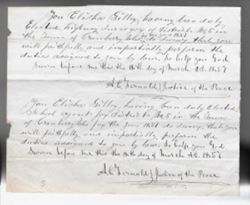 You Elisha Gilby, having been duly
Elected highway surveyor of District No 2 in
the Town of
will faithfully and impartially perform the
duties assigned to you by law. So help you God
Sworn before me this the 18th day of March AD 1858
Justice of the Peace
You Elisha Gilby, having been duly elected
School agent for District No 2 in the Town
of for the year 1858 do swear that you
will faithfully and impartially perform the
duties assigned to you by law So help you God
Sworn before me this the 18th day of March AD 1858
Justice of the Peace